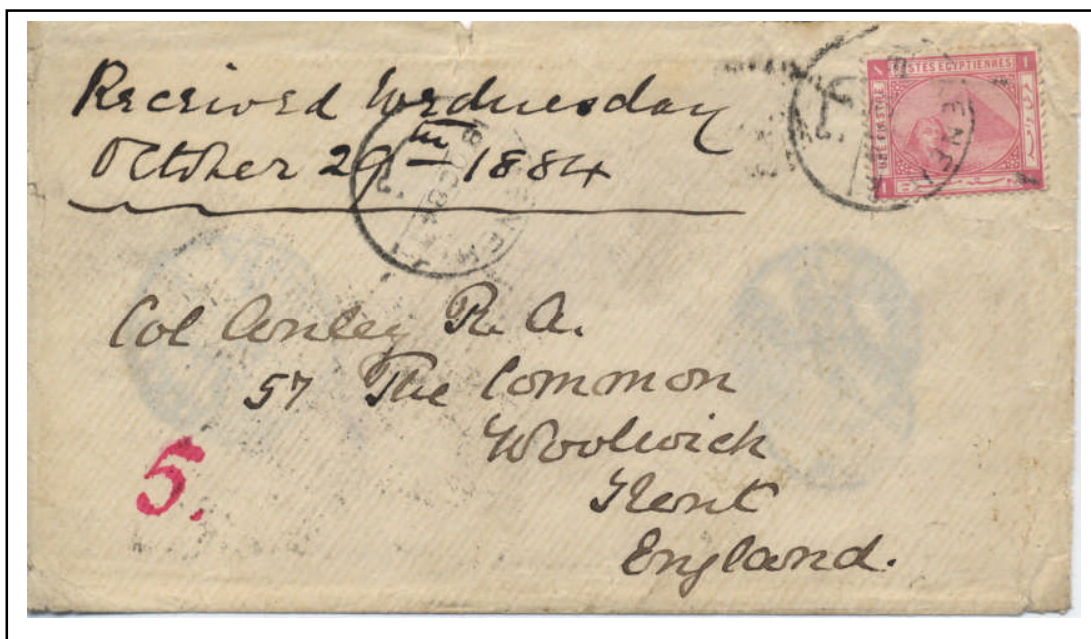 Received Wednesday
October 29th 1884
POSTES EGYPTIENNES
Col Conley R. A.
57 The Common
Woolwich
Kent
England.
5.